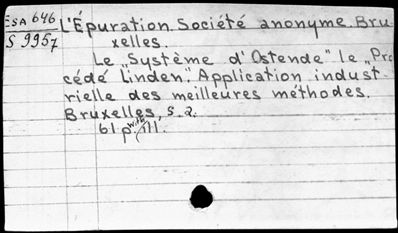 ESA 646
S 9957
L'Épuration Société anonyme. Bru
xelles.
Le „Système d'Ostende" le „Pro
cédé Linden". Application indust
rielle des meilleures méthodes.
Bruxelles, s. a.
61 p. with ill.